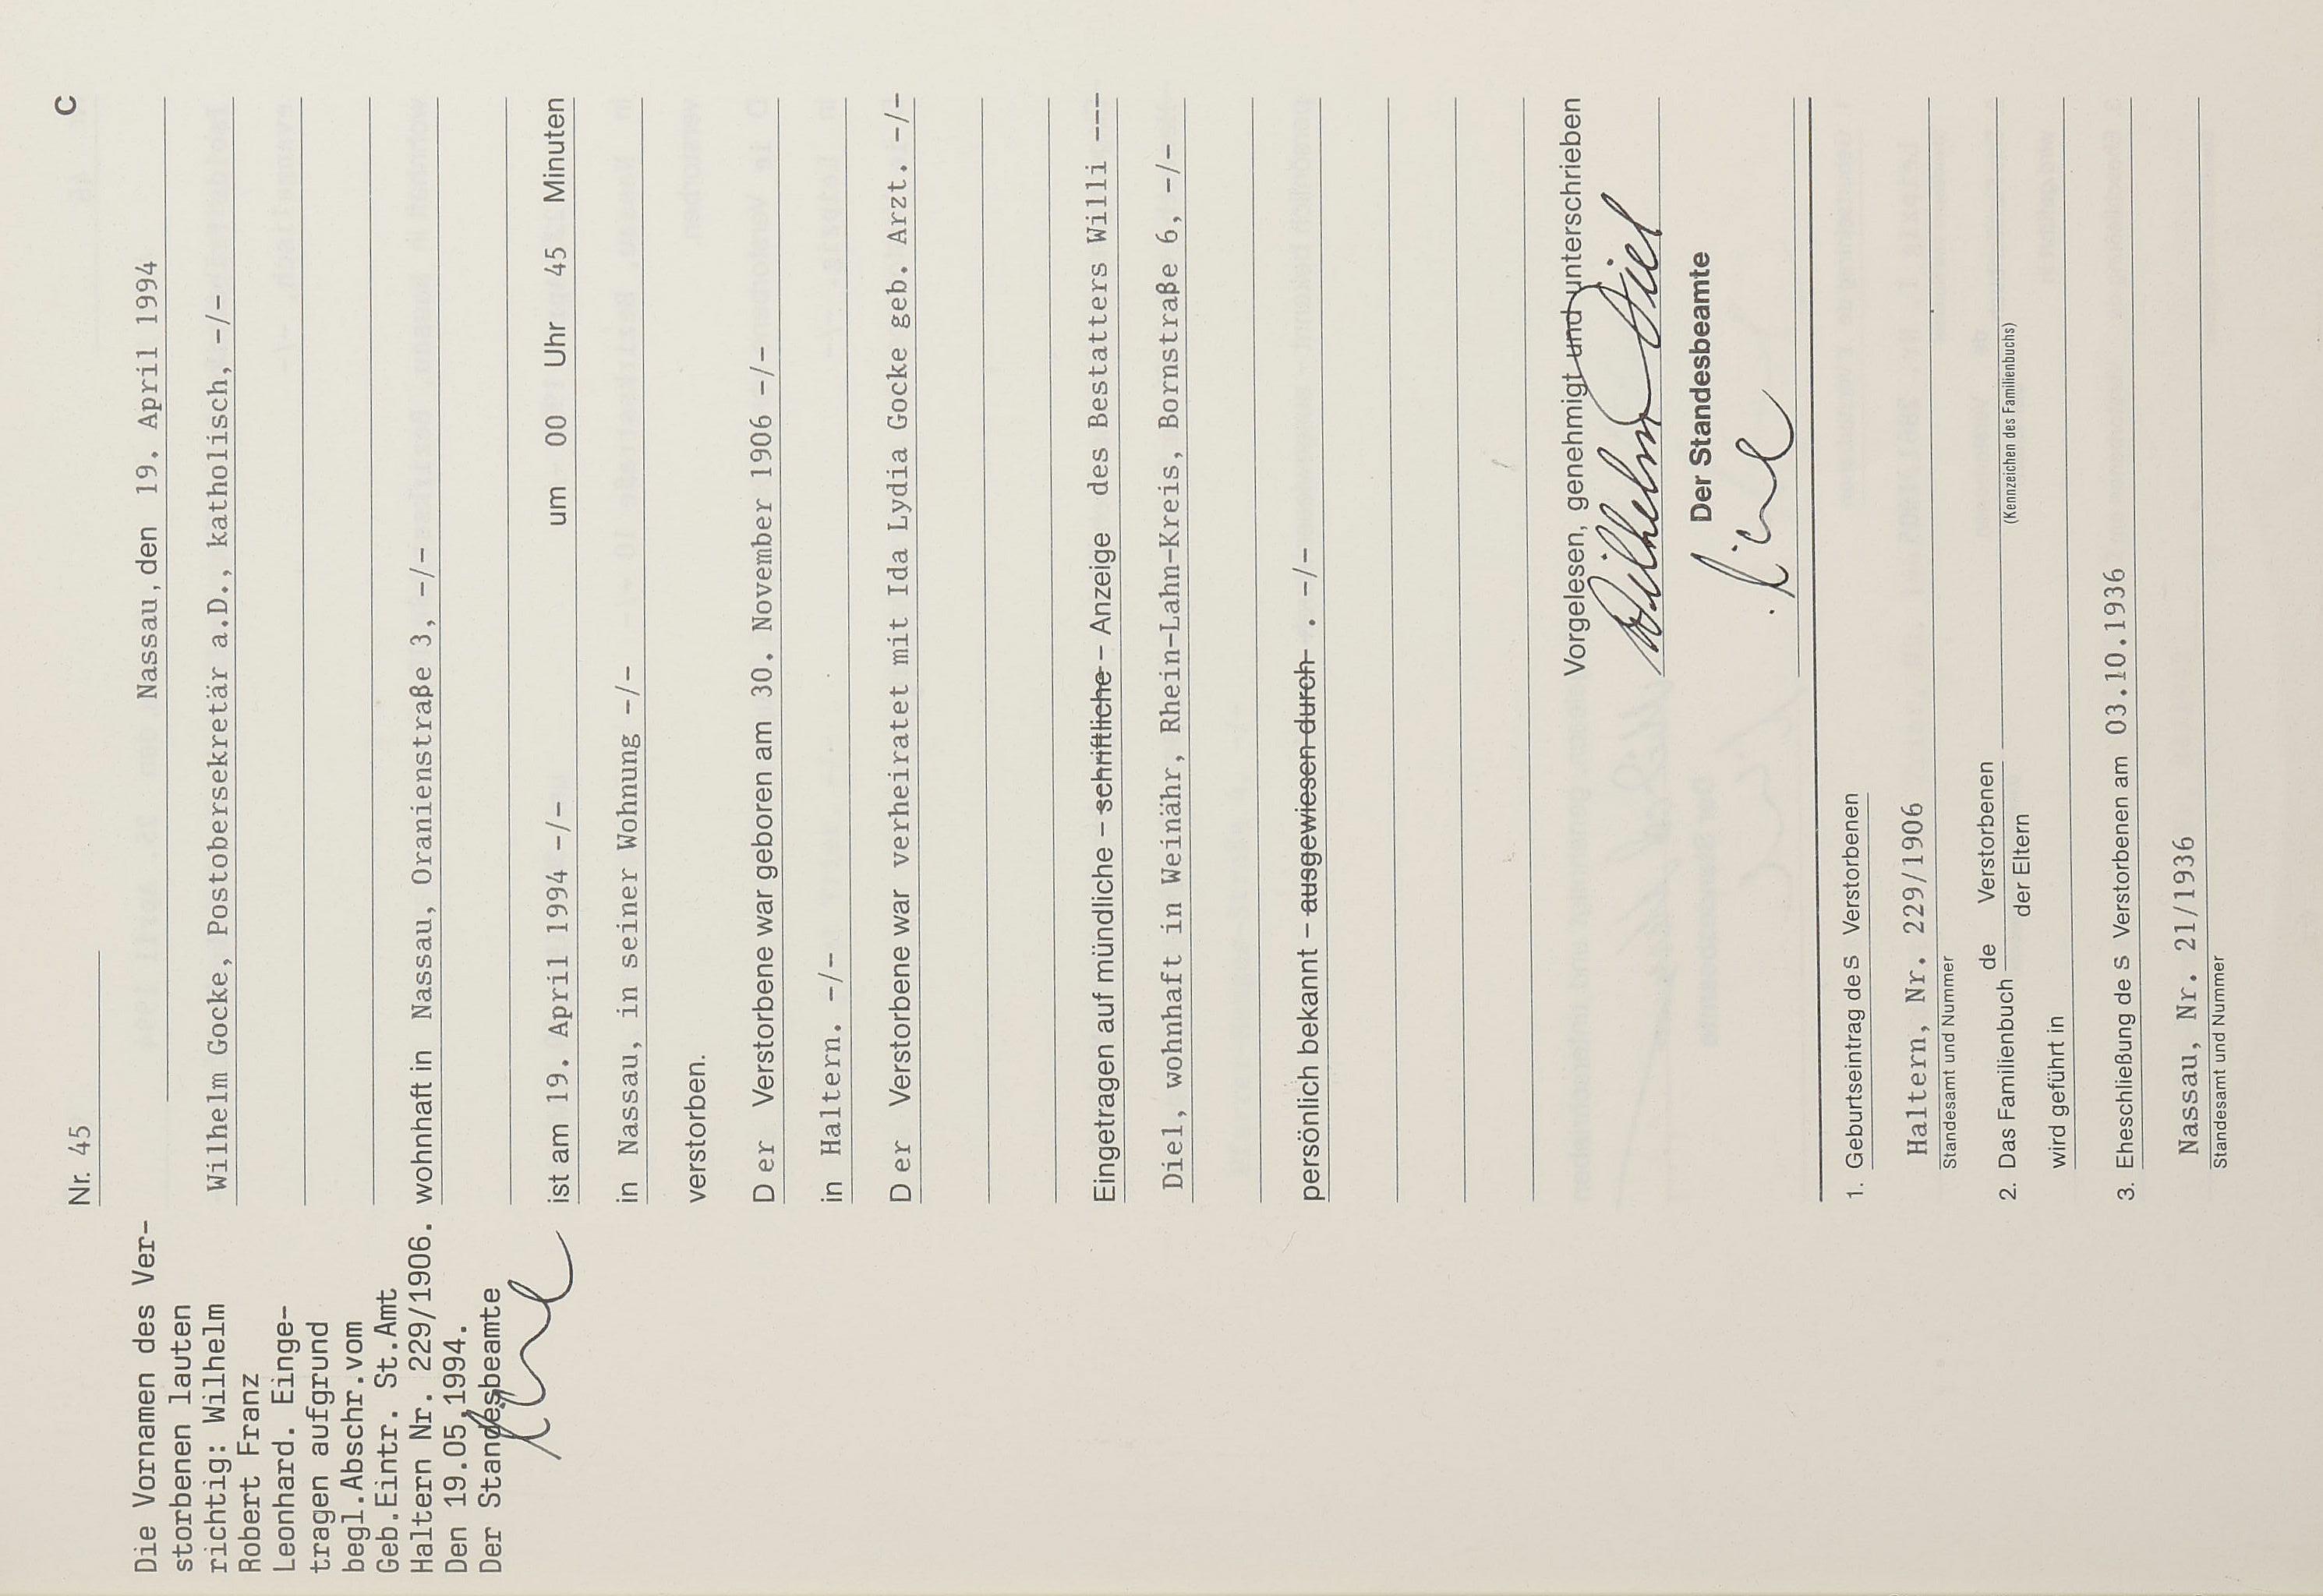 C
Nr. 45
Die Vornamen des Ver-
storbenen lauten
richtig: Wilhelm
Robert Franz
Leonhard. Einge-
tragen aufgrund
begl.Abschr.vom
Geb.Eintr. St.Amt
Haltern Nr. 229/1906.
Den 19.05.1994.
Der Standesbeamte
Nassau, den 19. April 1994
Wilhelm Gocke, Postobersekretär a.D., katholisch, -/-
wohnhaft in Nassau, Oranienstraße 3, -/-
ist am 19. April 1994 -/- um 00 Uhr 45 Minuten
in Nassau, in seiner Wohnung -/-
verstorben.
D er Verstorbene war geboren am 30. November 1906 -/-
in Haltern. -/-
D er Verstorbene war verheiratet mit Ida Lydia Gocke geb. Arzt. -/-
Eingetragen auf mündliche – schriftliche – Anzeige des Bestatters Willi ---
Diel, wohnhaft in Weinähr, Rhein-Lahn-Kreis, Bornstraße 6, -/-
persönlich bekannt – ausgewiesen durch . -/-
Vorgelesen, genehmigt und unterschrieben
Wilhelm Diel
Der Standesbeamte
1. Geburtseintrag des Verstorbenen
Haltern, Nr. 229/1906
Standesamt und Nummer
2. Das Familienbuch de Verstorbenen
der Eltern
(Kennzeichen des Familienbuchs)
wird geführt in
3. Eheschließung de s Verstorbenen am 03.10.1936
Nassau, Nr. 21/1936
Standesamt und Nummer